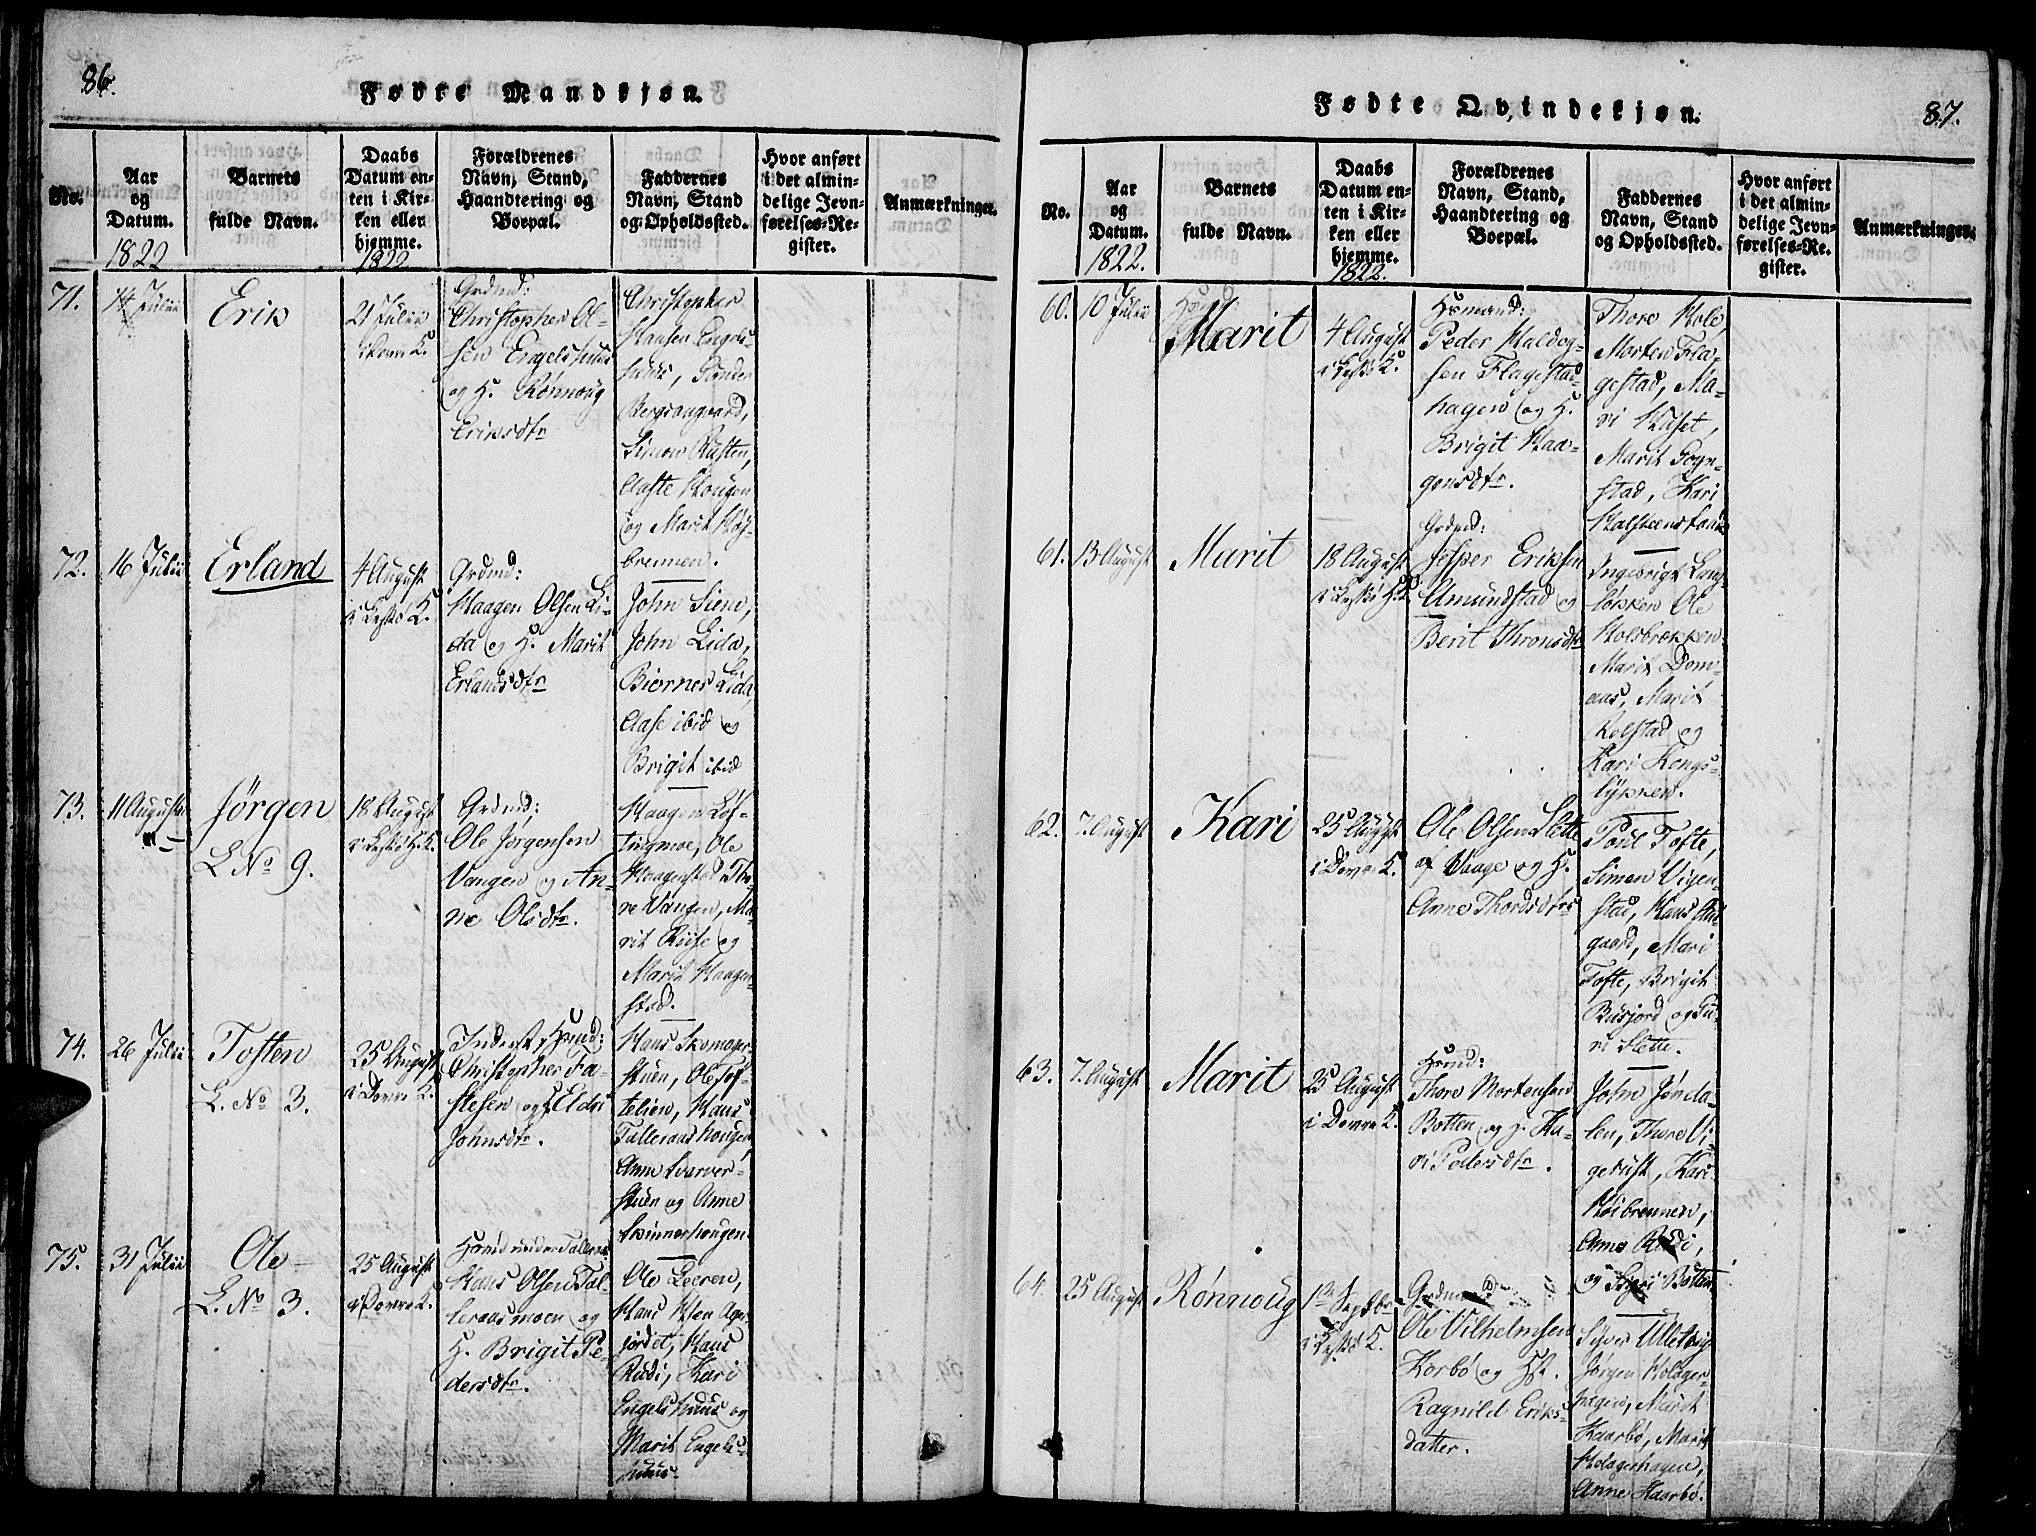 86.
Fødte Mandkjøn.
No.
Aar
og
Datum.
1822
Barnets
fulde Navn.
Daabs
Datum en-
ten i Kir-
ken eller
hjemme.
1822
Forældrenes
Navn, Stand,
Haandtering og
Boepæl.
Faddernes
Navn, Stand
og Opholdssted.
Hvor anført
i det almin-
delige Jevn-
førelses-Re-
gister.
Anmærkninger.
71.
14 Julii
Erik
21 Julii
i Dovre K.
Grdmd:
Christopher Ol-
sen Engelshuus
og H. Rønnoug
Eriksdtr
Christopher
Hansen Engels-
huus, Sønder
Bergsougaard,
Simon Rusten,
Aaste Hougen
og Marit Høy-
brennen.
72.
16 Julii
Erland
4 August
i Leskø K.
Grdmd:
Haagen Olsen Li-
da og H. Marit
Erlandsdtr
John Siem,
John Lida,
Biørnes Lida,
Aase ibid og
Brigit ibid
73.
11 Augusti
Jørgen
L. No 9.
18 August
i Leskø H.K.
Grdmd:
Ole Jørgensen
Vangen og An-
ne Olsdtr.
Haagen Løf-
tingmoe, Ole
Haagenstad, Tho-
re Vangen, Ma-
rit Riise og
Marit Haagen-
stad.
74.
26 Julii
Tosten
L. No 3.
25 August
i Dovre K.
Inderst, Hsmd:
Christopher Fa-
stesen og Eldri
Johnsdtr.
Hans Skomager-
stuen, Ole Tof-
telien, Hans
Talleraashougen,
Anne Svarver-
stuen og Anne
Skinnerhougen
75.
31 Julii
Ole
L. No 3.
25 August
i Dovre K.
Hsmd under Talleraas
Hans Olsen Tal-
leraasmoen og
H. Brigit Pe-
dersdtr.
Ole Leeren,
Hans
jordet, Hans
Rudi, Kari
Engelshuus og
Marit Engels-
huus.
87.
Fødte Qvindekjøn.
No.
Aar
og
Datum.
1822.
Barnets
fulde Navn.
Daabs
Datum en-
ten i Kir-
ken eller
hjemme.
1822.
Forældrenes
Navn, Stand,
Haandtering og
Boepæl.
Faddernes
Navn, Stand
og Opholdssted.
Hvor anført
i det almin-
delige Jevn-
førelses-Re-
gister.
Anmærkninger.
60.
10 Julii
Marit
4 August
i Leskø K.
Hsmand:
Peder Haldog-
sen Flagestad-
hagen og H.
Brigit Haa-
gensdtr.
Thore Hole,
Morten Fla-
gestad, Ma-
ri Huset,
Marit Goyn-
stad, Kari
61.
13 August
Marit
18 August
i Leskø H.K.
Grdmd:
Jesper Eriksen
Amundstad og
Berit Thronsdtr
Ingebrigt Lang-
løkken Ole
Holsbrekken
Marit Dom-
aas, Marit
Rolstad og
Kari Kongs-
lykken.
62.
7. August
Kari
25 August
i Dovre K.
Ole Olsen Slette
af Vaage og H.
Anne Thordsdtr
Poul Tofte,
Simon Vigen-
stad, Hans
gaard, Mari
Tofte, Brigit
Busjord og Gu-
ri Slette.
63.
7. August
Marit
25 August
i Dovre K.
Hsmd:
Thore Mortensen
Botten og H. Ka-
ri Pedersdtr.
John Jønda-
len, Thore Vi-
gerust, Kari
Høibrennen,
Anne Rudi,
og Sigri Botten
64.
25 August
Rønnoug
1ste Septbr
i Leskø K.
Grdmd
Ole Vilhelmsen
Korbø og Hst.
Ragnild Eriks-
datter.
Syver Uletvig
Jørgen Holager-
hagen, Marit
Kaarbø, Marit
Holagerhagen,
Anne Kaarbø.